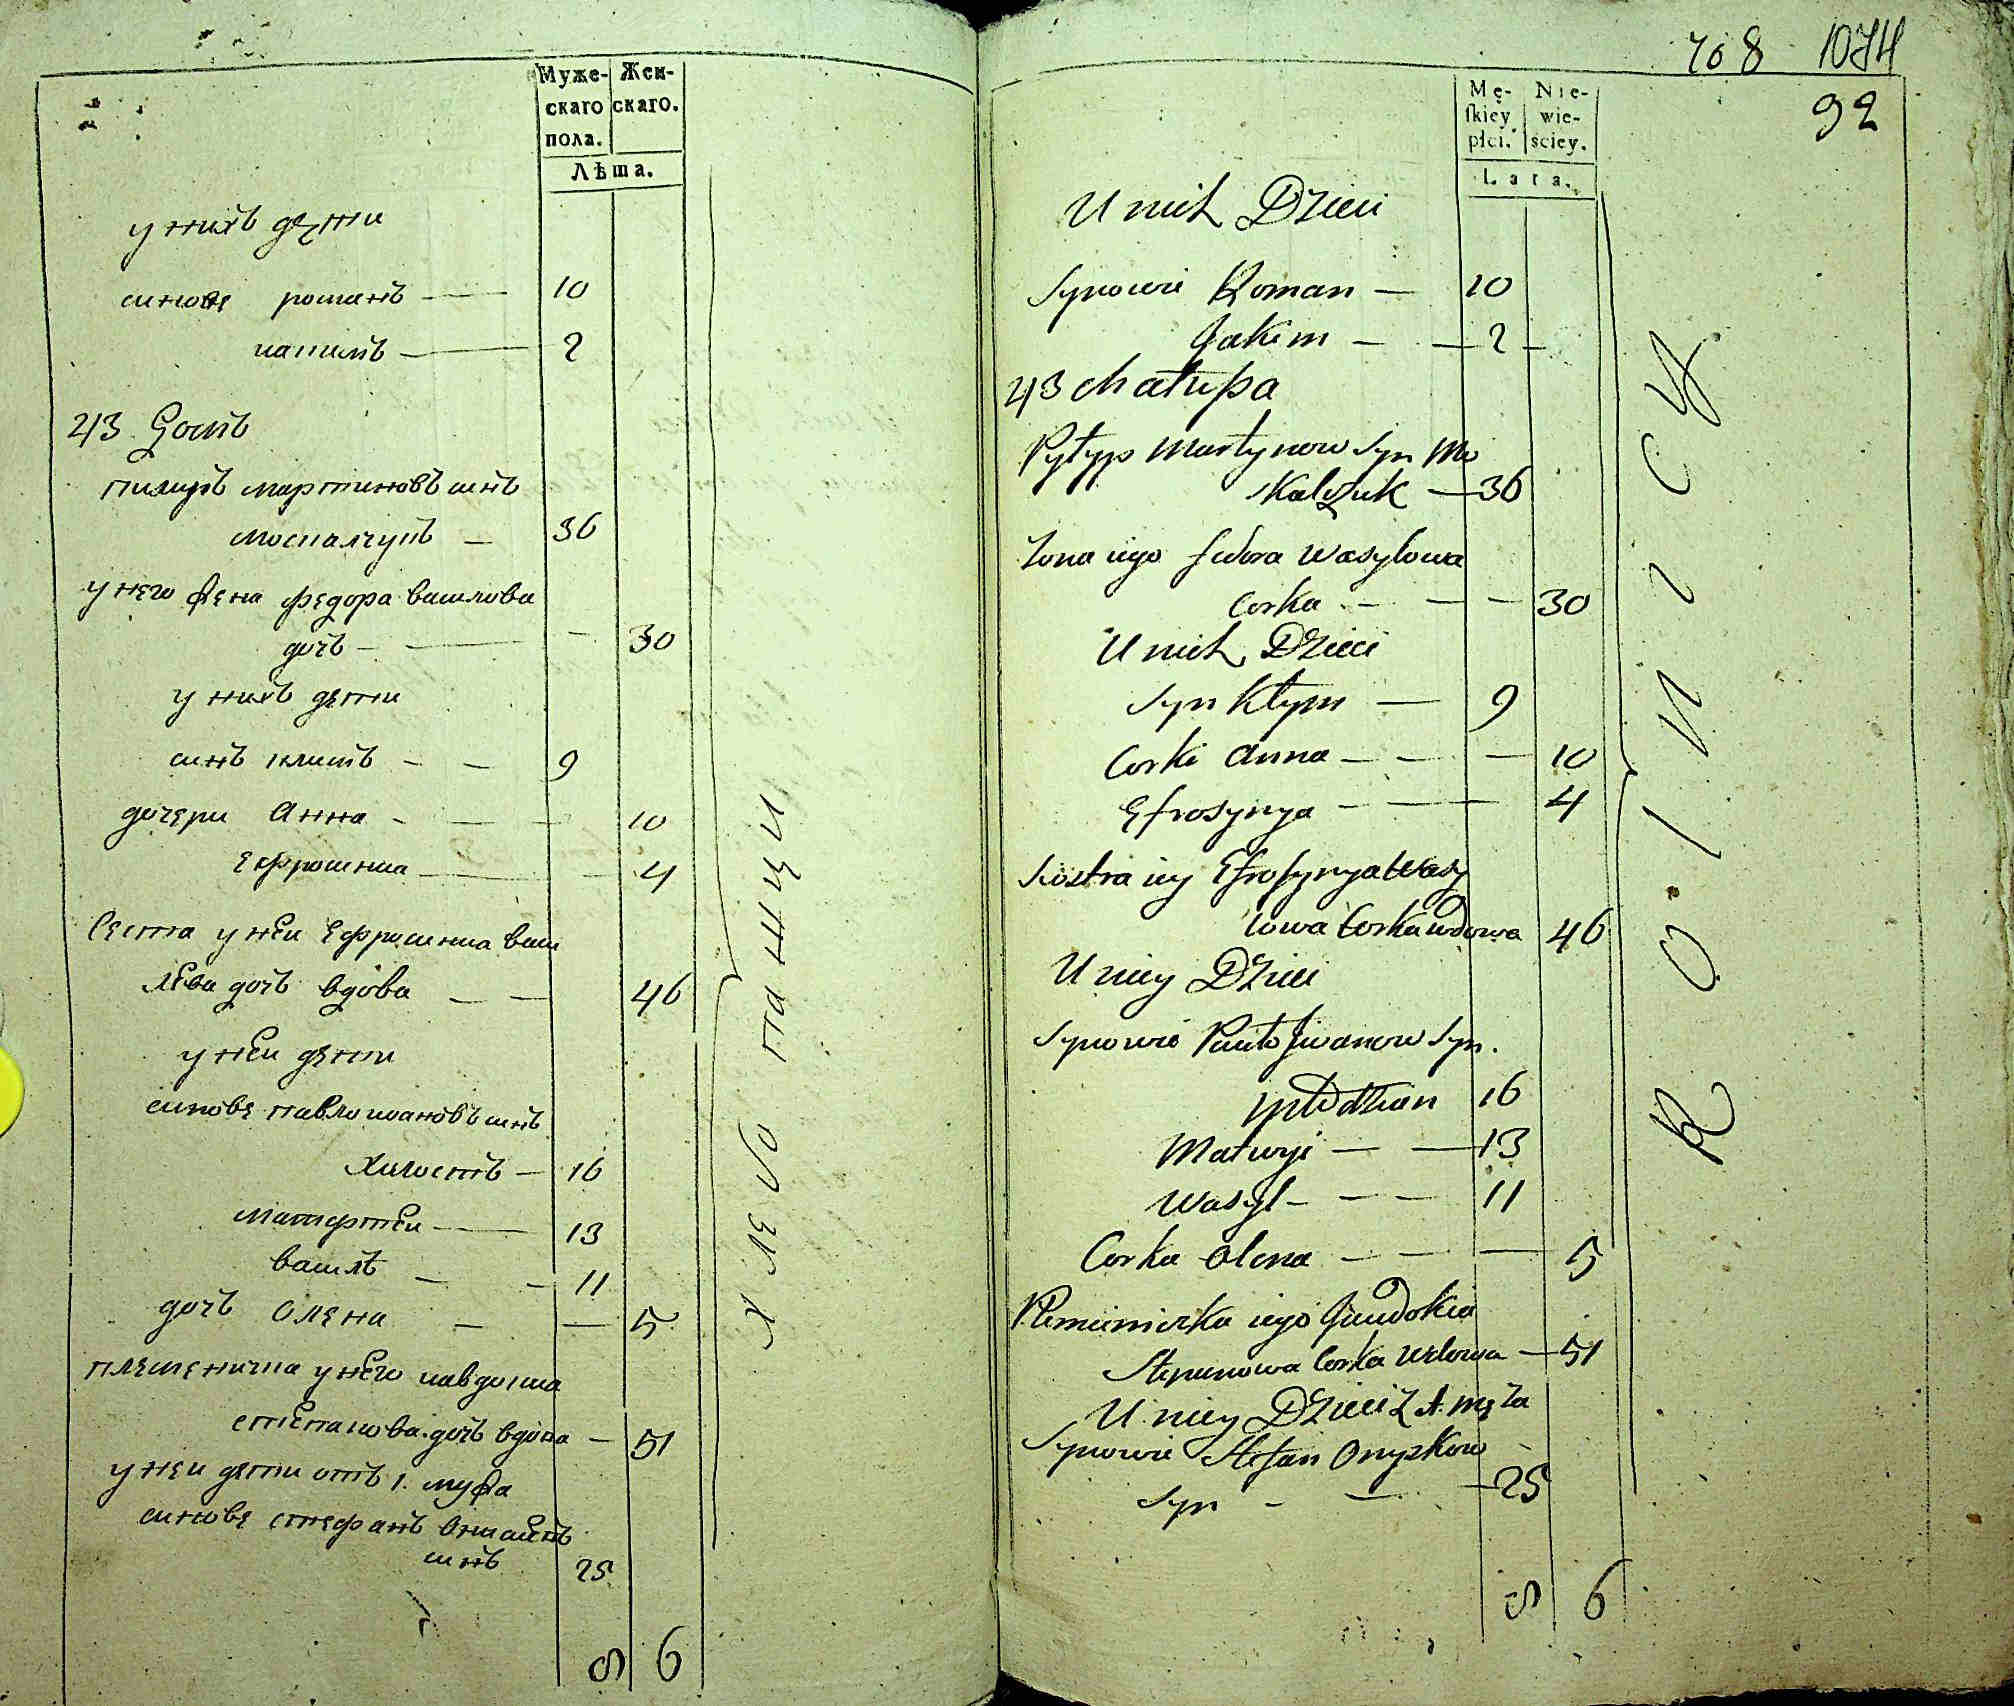 Муже- Жен-
скаго скаго.
пола.
Лѣта.
у нихъ дѣти
синове романъ — 10
иакимъ — 2
43 домъ
пилипъ мартиновъ синъ
москалчукъ — 36
у него жена федора василова
дочъ — 30
у нихъ дѣти
синъ климъ — 9
дочери Анна — 10
Ефросиниа — 4
Сестра у неи Ефросиниа васи
лева дочъ вдова — 46
у неи дети
синове павло ивановъ синъ
16
матфеи — 13
василь — 11
дочъ Олена — 5
племеница у него иавдокиа
степанова дочъ вдова — 51
у неи дети отъ 1. мужа
синове стефанъ
синъ 25
8 6
Хлебопашци
708 1074
92
Mę- Nie-
skiey wie-
płci. ściey.
Lata.
U nich Dzieci
Synowie Roman — 10
Jakim — 2
43 Chałupa
Pyłyp Martynow Syn Mo
skalczuk — 36
Żona iego Fedora Wasylowa
Corka — 30
U nich Dzieci
Syn Kłym — 9
Corki Anna — 10
Efrosynya — 4
Siostra iey Efrosynya Wasy
lowa Corka wdowa 46
U niey Dzieci
Synowie Pawło Jwanow Syn.
16
Matwyi — 13
Wasyl — 11
Corka Olena — 5
Plemiennicka iego Jawdokia
Stepanowa Corka Wdowa — 51
U niey Dzieci z 1. Męża
Synowie Stefan Onyszkow
Syn — 25
8 6
Rolnicy